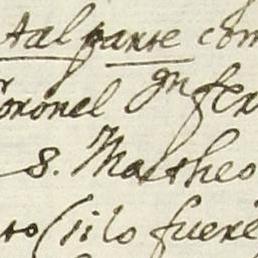 tal parte com
Coronel gn fer
8. Mattheo
to (si lo fuere